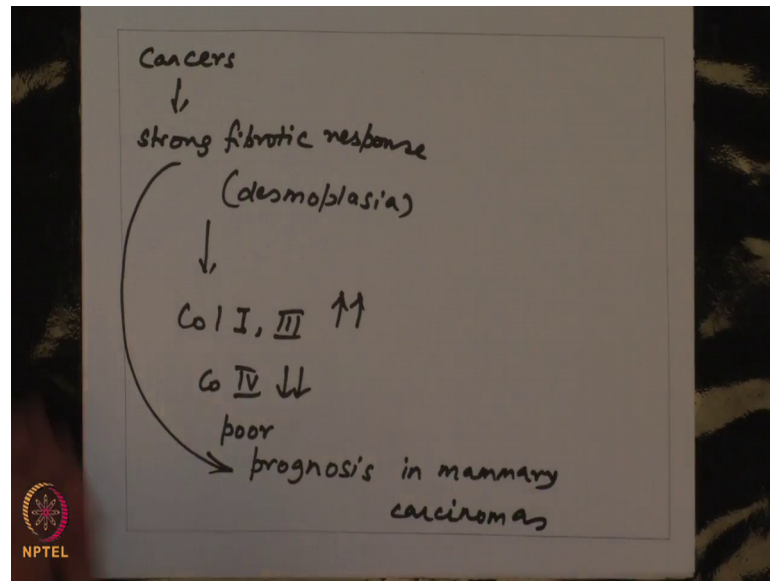 Cancers
↓
strong fibrotic response
(desmoplasia)
↓
Col I, III ↑↑
Co IV ↓↓
poor
prognosis in mammary
carcinomas
NPTEL